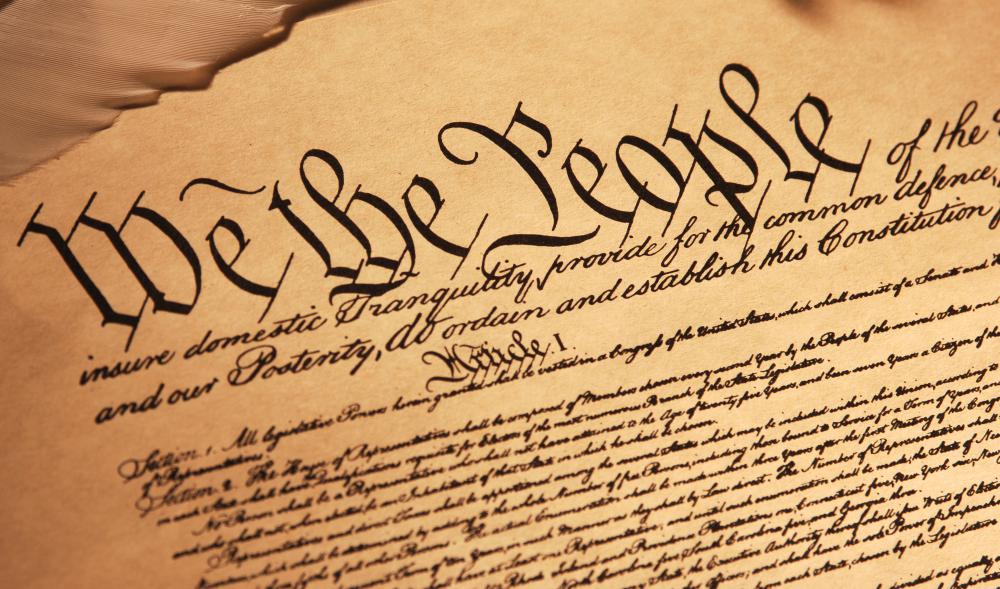 We the People of the
insure domestic Tranquility, provide for the common defence,
and our Posterity, do ordain and establish this Constitution
Article. I.
Section. 1. All legislative Powers herein granted shall be vested in a Congress of the United States, which shall consist of a Senate and
of Representatives.
Section. 2. The House of Representatives shall be composed of Members chosen every second Year by the People of the several States, and
in each State shall have the Qualifications requisite for Electors of the most numerous Branch of the State Legislature.
No Person shall be a Representative who shall not have attained to the Age of twenty five Years, and been seven Years a Citizen of the
and who shall not, when elected, be an Inhabitant of that State in which he shall be chosen.
Representatives and direct Taxes shall be apportioned among the several States which may be included within this Union, according to
which shall be determined by adding to the whole Number of free Persons, including those bound to Service for a Term of Years, and
of all other Persons. The actual Enumeration shall be made within three Years after the first Meeting of the
Term of ten Years, in such Manner as they shall by Law direct. The Number of Representatives shall
have at Least one Representative; and until such enumeration shall be made, the State of New
Rhode Island and Providence Plantations one, Connecticut five, New York six, New
North Carolina five, South Carolina five, and Georgia three.
the Executive Authority thereof shall issue Writs of
and shall have the sole Power of
from each State, chosen by the Legislature